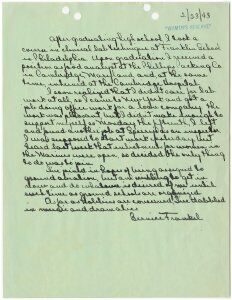 2/23/43
"WOMEN'S RESERVE"
After graduating high school I took a
course in clinical lab technique at Franklin School
in Philadelphia. Upon graduation I received a
position as food analyst at the Phillips Packing Co
in Cambridge Maryland and at the same
time interned at the Cambridge hospital.
I soon realized that I didn't care for lab
work at all, so I came to New York and got a
job doing office work for a loan company. The
work was pleasant but I didn't make enough to
support myself so
and found another job at Sperry's as an inspector
I was supposed to start work yesterday, but
heard last week that enlistments for women in
the Marines were open, so decided the only thing
to do was to join.
in hopes of being assigned to
ground aviation, but am willing to get in
now and do whatever is desired of me until
such time as ground schools are organized.
As far as hobbies are concerned I've dabbled
in music and dramatics
Bernice Frankel